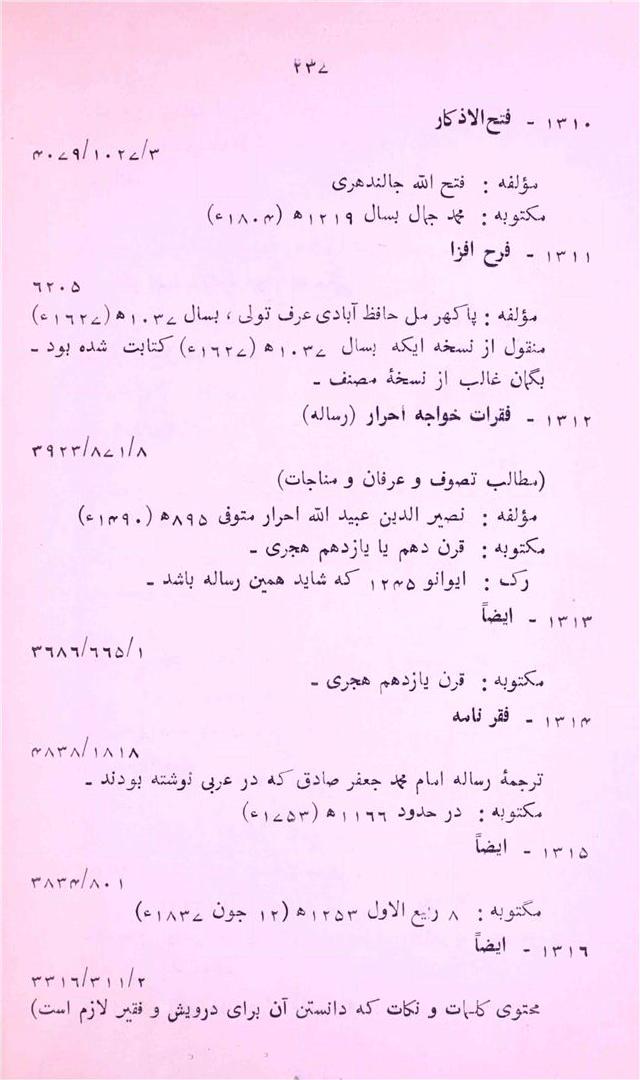 ۲۳۷
۱۳۱۰ - فتح الاذکار
۴۰۷۹/۱۰۲۷/۳
مؤلفه : فتح الله جالندهری
مکتوبه : محمد جمال بسال ۱۲۱۹ھ (۱۸۰۴ء)
۱۳۱۱ - فرح افزا
۶۲۰۵
مؤلفه : پاکھر مل حافظ آبادی عرف تولی ، بسال ۱۰۳۷ھ (۱۶۲۷ء)
منقول از نسخه ایکه بسال ۱۰۳۷ھ (۱۶۲۷ء) کتابت شده بود ـ
بگمان غالب از نسخۀ مصنف ـ
۱۳۱۲ - فقرات خواجه احرار (رساله)
۳۹۲۳/۸۷۱/۸
(مطالب تصوف و عرفان و مناجات)
مؤلفه : نصیر الدین عبید الله احرار متوفی ۸۹۵ھ (۱۴۹۰ء)
مکتوبه : قرن دهم یا یازدهم هجری ـ
رک : ایوانو ۱۲۴۵ که شاید همین رساله باشد ـ
۱۳۱۳ - ایضاً
۳۶۸۶/۶۶۵/۱
مکتوبه : قرن یازدهم هجری ـ
۱۳۱۴ - فقر نامه
۴۸۳۸/۱۸۱۸
ترجمۀ رساله امام محمد جعفر صادق که در عربی نوشته بودند ـ
مکتوبه : در حدود ۱۱۶۶ھ (۱۷۵۳ء)
۱۳۱۵ - ایضاً
۳۸۳۴/۸۰۱
مکتوبه : ۸ ربیع الاول ۱۲۵۳ھ (۱۲ جون ۱۸۳۷ء)
۱۳۱۶ - ایضاً
۳۳۱۶/۳۱۱/۲
محتوی کلمات و نکات که دانستن آن برای درویش و فقیر لازم است)